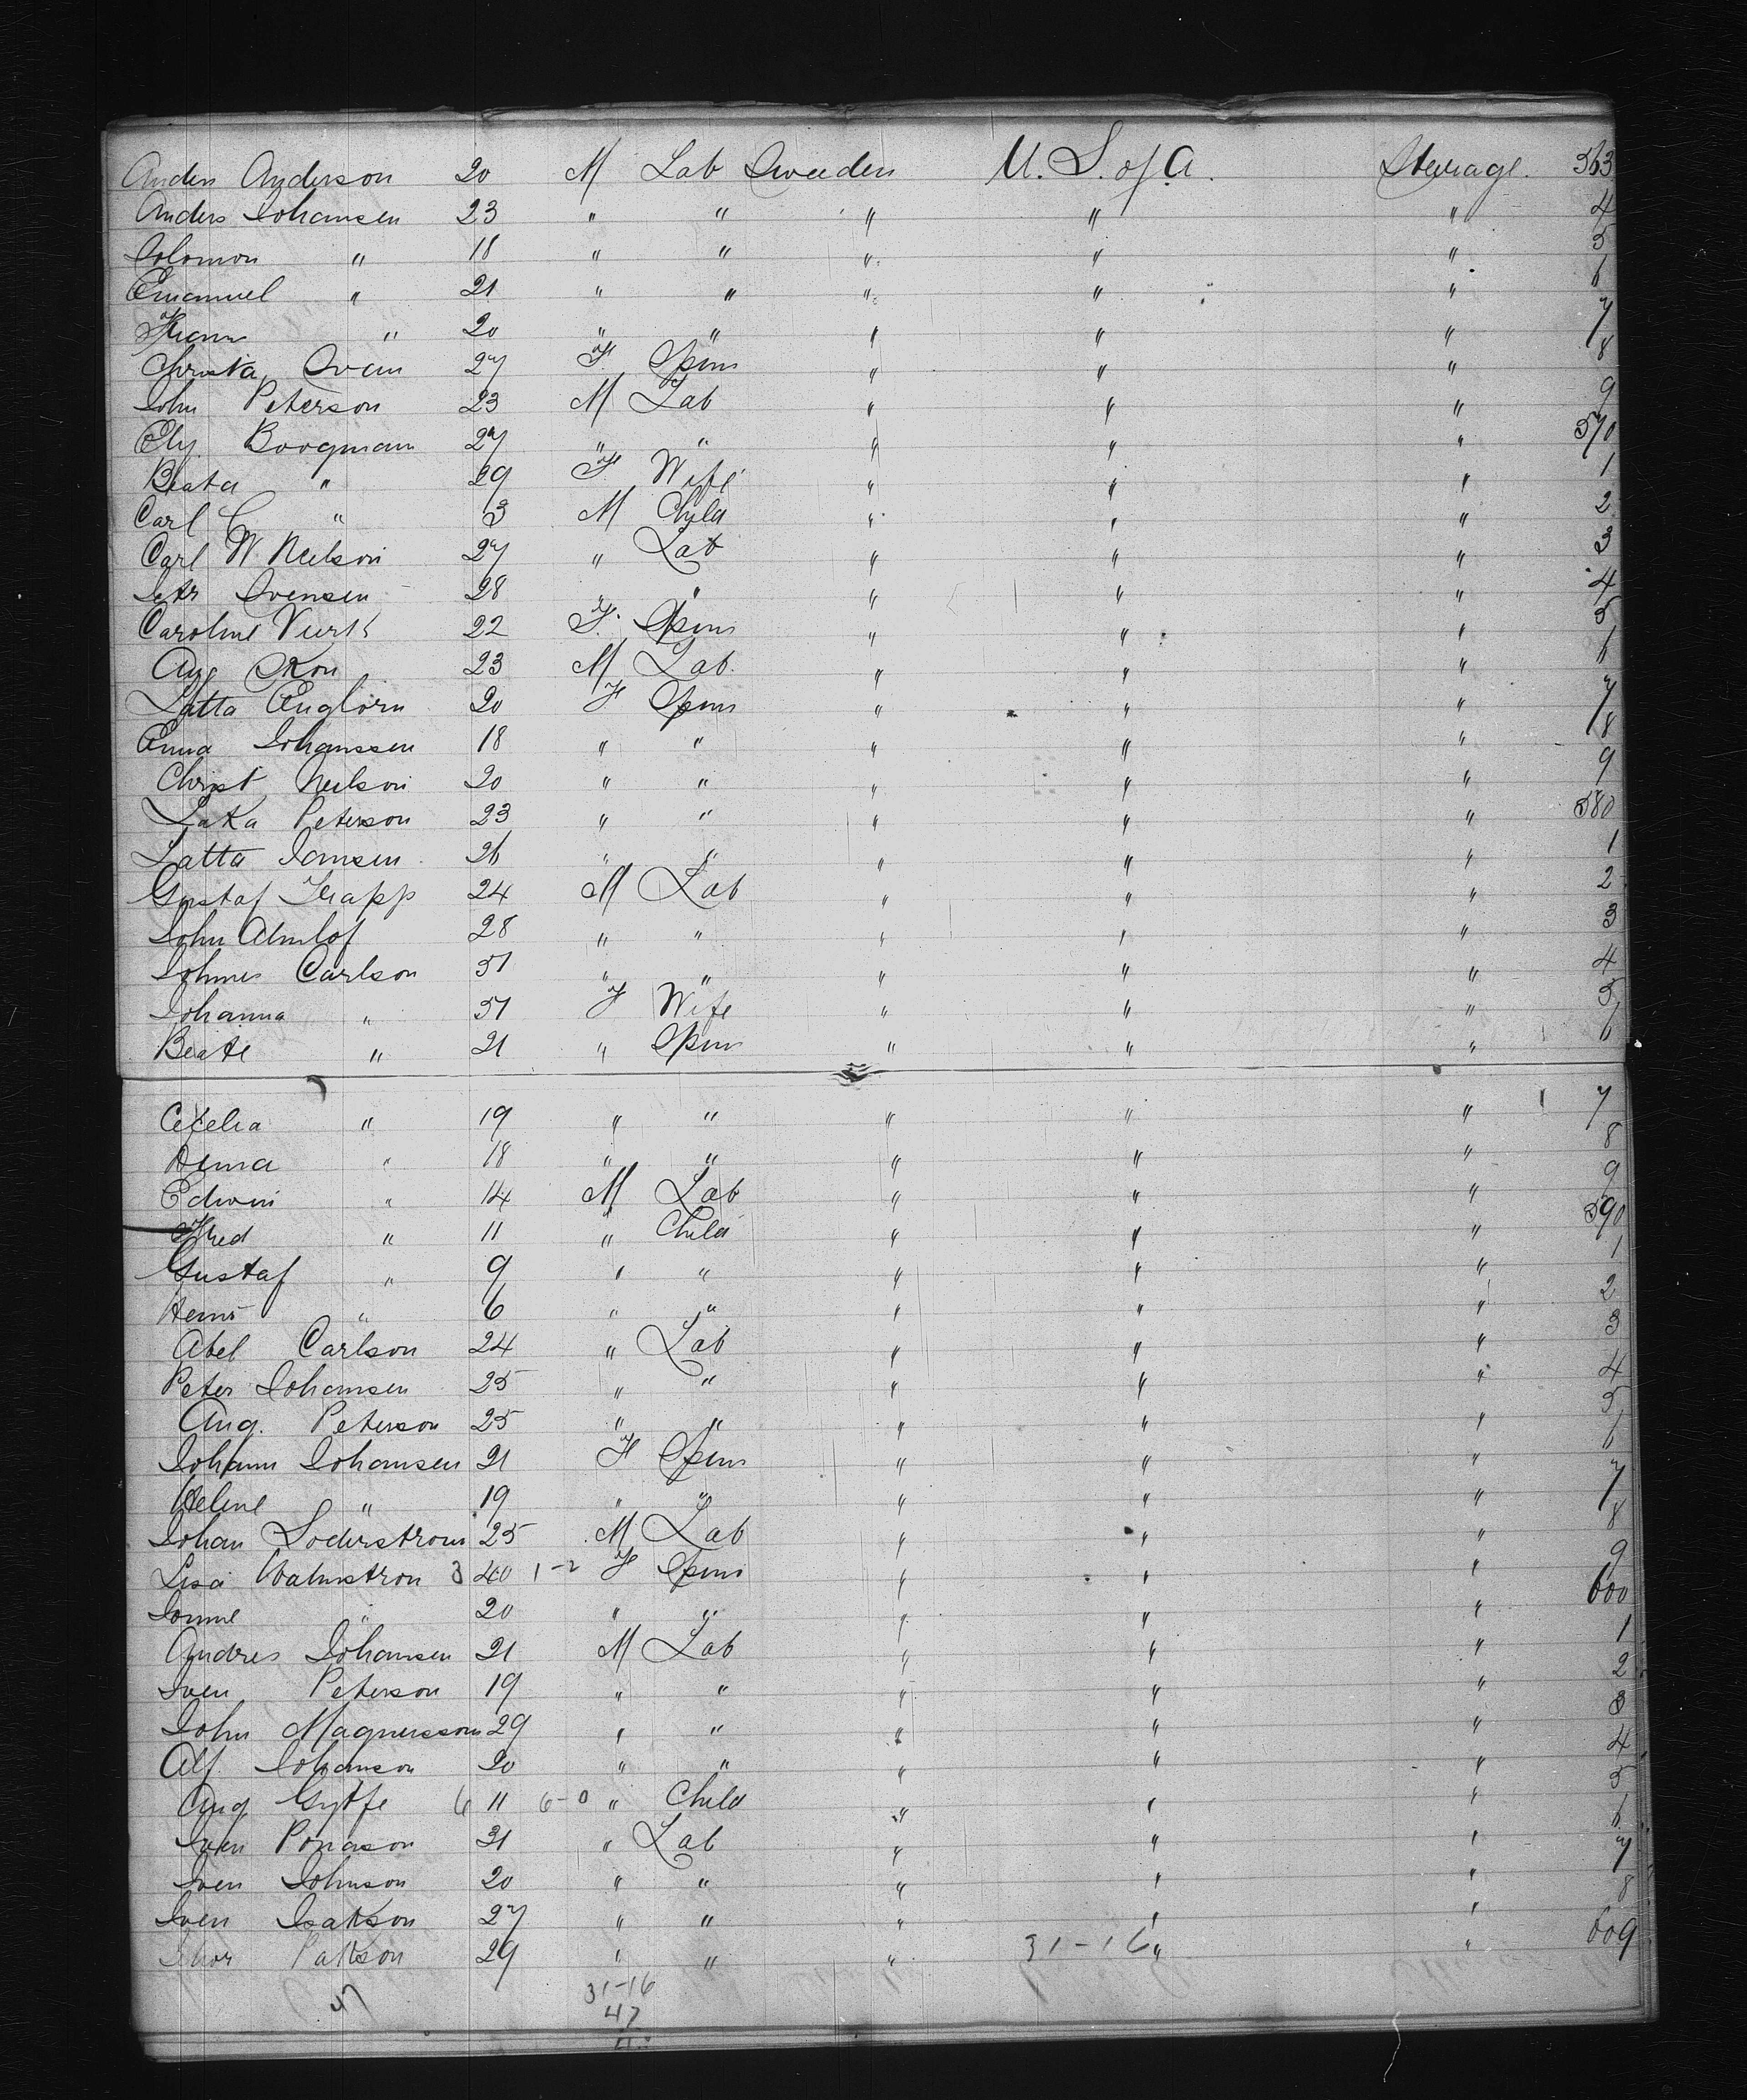 Anders Anderson 20 M Lab Sweden U. S. of A. Steerage. 563
Anders Johansen 23 " " " " " 4
Solomon " 18 " " " " " 5
Emanuel " 21 " " " " " 6
" 20 " " " " " 7
Christa Sven 27 F. Spins " " " 8
John Peterson 23 M Lab " " " 9
Ely. Boogman 27 " " " " " 570
Beata " 29 F. Wife " " " 1
Carl C " 3 M Child " " " 2
Carl W. Neilson 27 " Lab " " " 3
Svensen 28 " " " " " 4
Caroline 22 F. Spins " " " 5
Aug 23 M Lab. " " " 6
Latta 20 F Spins " " " 7
Emma Johanssen 18 " " " " " 8
Christ Neilson 20 " " " " " 9
Peterson 23 " " " " " 580
Latta Jamsen 26 " " " " " 1
Gustaf Trapp 24 M Lab " " " 2
John Almlof 28 " " " " " 3
Johnes Carlson 51 " " " " " 4
Johanna " 51 F Wife " " " 5
Beate " 21 " Spins " " " 6
Cecelia " 19 " " " " " 7
" 18 " " " " " 8
Edwin " 14 M Lab " " " 9
Fred " 11 " Child " " " 590
Gustaf " 9 " " " " " 1
" 6 " " " " " 2
Abel Carlson 24 " Lab " " " 3
Peter Johansen 25 " " " " " 4
Aug. Peterson 25 " " " " " 5
Johann Johansen 21 F Spins " " " 6
Helene " 19 " " " " " 7
Johan Soderstrom 25 M Lab " " " 8
Lisa Walmstron 3 40 1-2 F Spins " " " 9
" 20 " " " " " 600
Andres Johansen 21 M Lab " " " 1
Sven Peterson 19 " " " " " 2
John Magnersson 29 " " " " " 3
Alf. Johanson 20 " " " " " 4
Aug 6 11 6-0 " Child " " " 5
Sven Ponason 31 " Lab " " " 6
Sven Johnson 20 " " " " " 7
Sven Isakson 27 " " " " " 8
29 " " " 31-16 " " 609
31-16
47